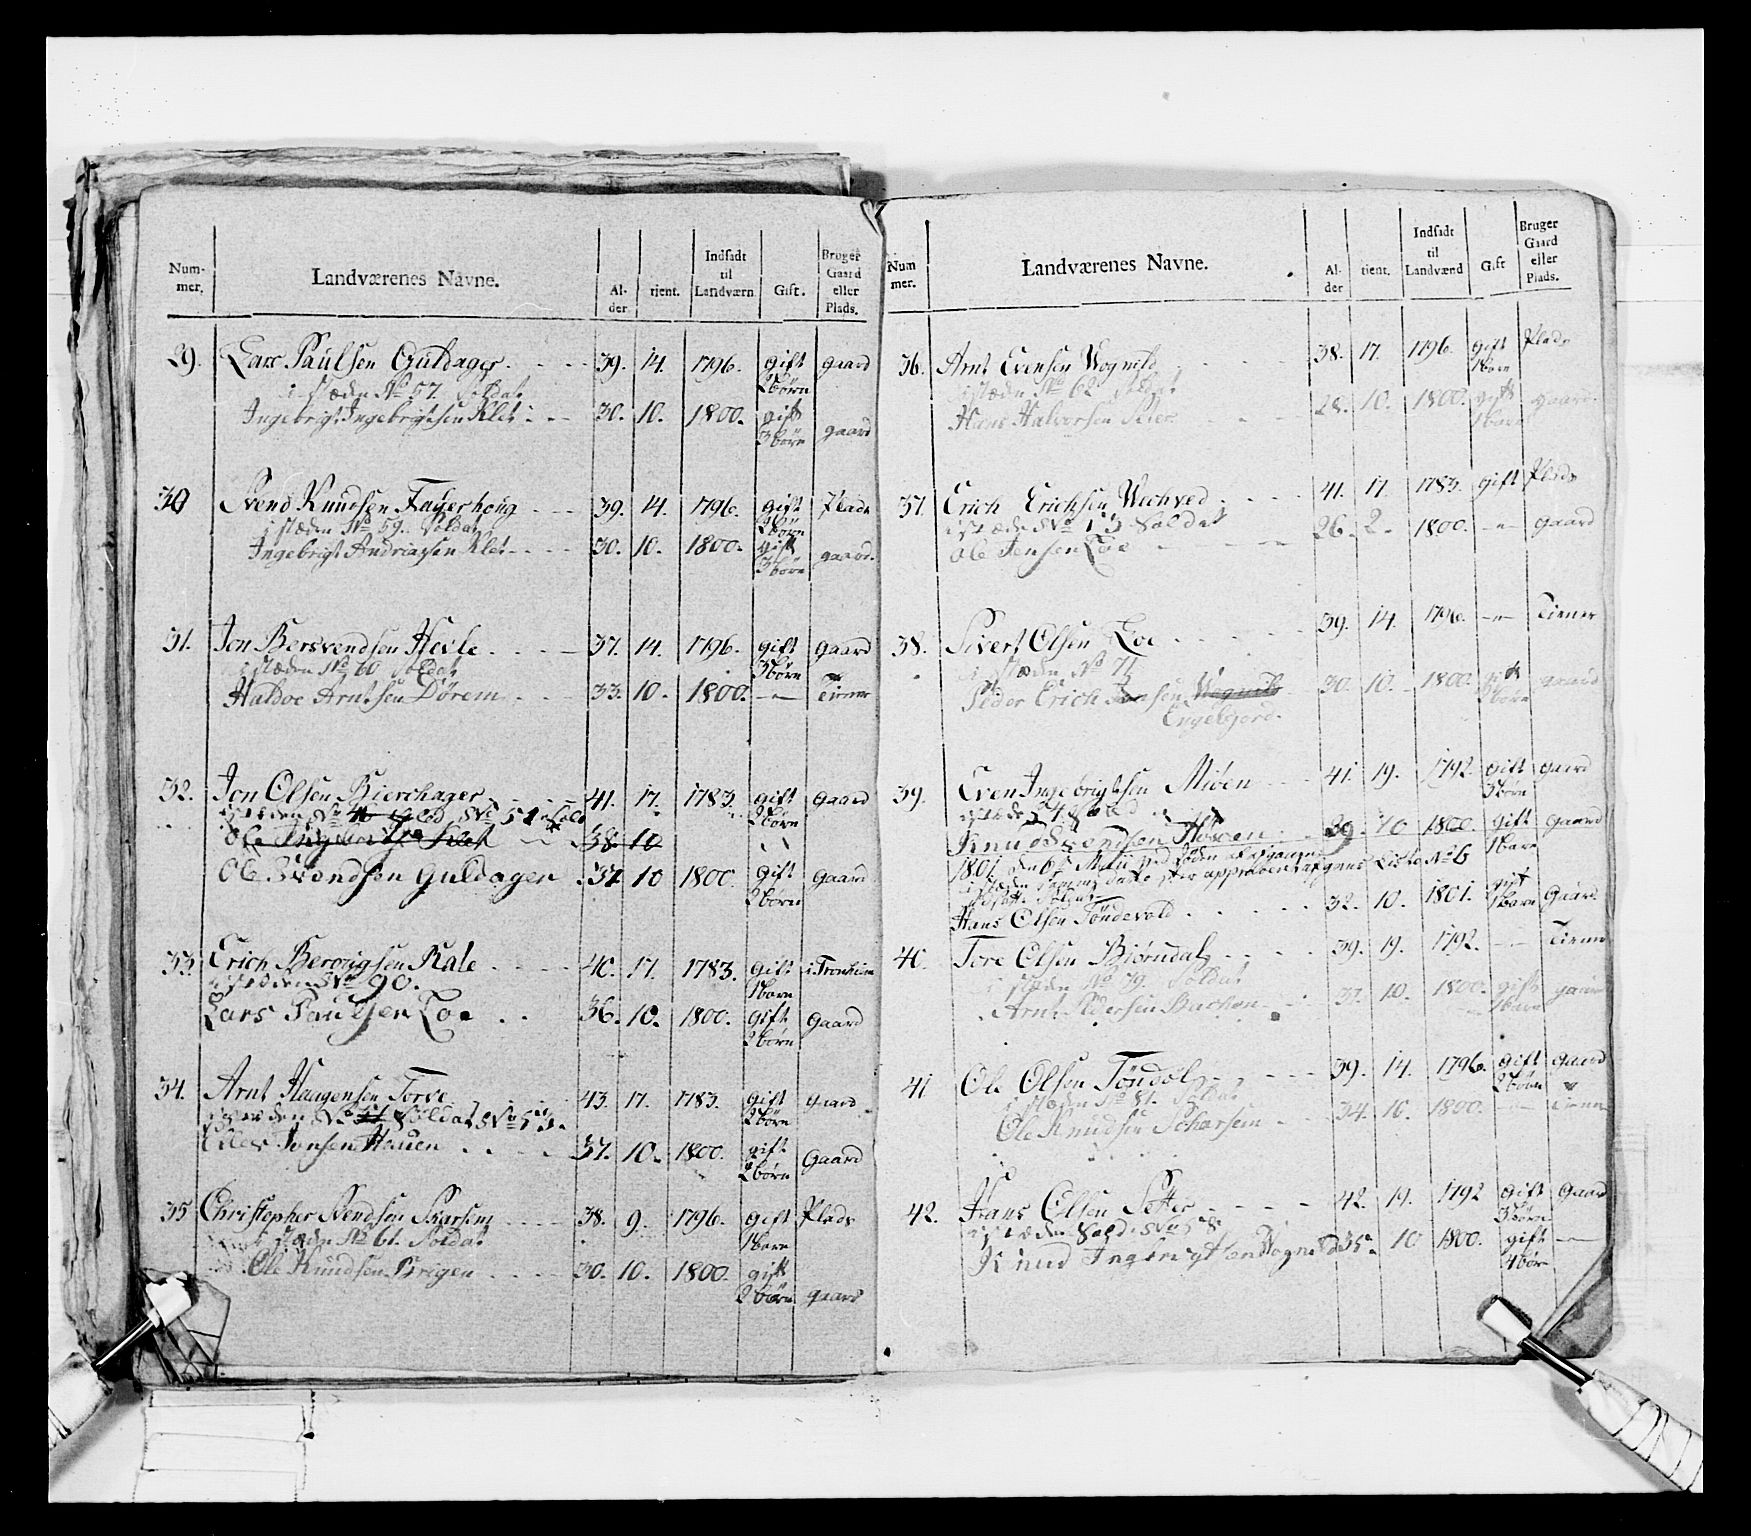 Num-
mer.
Landværenes Navne.
Al-
der
tient.
Indsadt
til
Landværn
Gift.
Bruger
Gaard
eller
Plads.
29. Lars Paulsen Guldager 39. 14. 1796. gift 2 børn gaard
i stæden No 57. Soldat
Ingebrigt Ingebrigtsen Klet 30. 10. 1800. gift 3 børn gaard
30 Svend Knudsen Fagerhoug 39. 14. 1796. gift 2 børn Plads
i stæden No 59. Soldat
Ingebrigt Andriassen Klet 30. 10. 1800. gift 3 børn gaard.
31. Jon Bersvendsen Hevle 37. 14. 1796. gift 3 børn gaard
i stæden No 60 Soldat
Haldoe Arntsen Dörem 33. 10. 1800. Tiener
32. Jon Olsen Bierchager 41. 17. 1783. gift 2 børn gaard
i stæden No
Ole 38. 10
Ole Svendsen Guldager 37 10 1800. gift 2 børn gaard
33. Erich Berorigsen Kale 40. 17. 1783. gift 1 barn i Tronhiem
i stæden No 90.
Lars Paulsen Loe 36. 10. 1800. gift 2 børn gaard
34. Arnt Haagensen Torve 43. 17. 1783. gift 2 børn gaard
i stæden No Soldat No 53.
Jonsen Hauen 37. 10. 1800. gift 2 børn gaard
35 Christopher Svendsen Skarsem 38. 9. 1796. gift 1 barn Plads
i stæden No 61. Soldat
Ole Knudsen Bregen 30. 10. 1800. gift 2 børn gaard
Num
mer.
Landværenes Navne.
Al-
der
tient.
Indsadt
til
Landværnd
Gift
Bruger
Gaard
eller
Plads.
36. Arnt Evensen Wognild 38. 17. 1796. gift 1 barn Plads
i stæden No 62 Soldat
Hans Halvorsen Rier 28. 10. 1800. gift 1 barn gaard.
37. Erich Erichsen Wechved 41. 17. 1783. gift Plads
i stæden No 13 Soldat
Ole Jensen Loe 26. 2. 1800. gaard
38. Sivert Olsen Loe 39. 14. 1796. Tiener
i stæden No 71
Peder Erich sen Wognild 30. 10. 1800. gift 2 børn gaard
Engelsjord.
39. Even Ingebrigtsen Miöen 41. 19. 1792. gift 3 børn gaard
i stæden
Knud Svendsen Hoven 29. 10 1800. gift 1 barn gaard
1801 den 6t Maii ved Döden afgangen
i stæden afgangs Liste No 6
Hans Olsen Töndevold 32. 10. 1801. gift 1 barn Gaard
40. Tore Olsen Biørndal 39. 19. 1792. Tiener
i stæden No 79. Soldat
Arnt Pedersen Bachen 37. 10. 1800. gift 1 barn gaard
41 Ole Olsen Töndöl 39. 14. 1796. gift 2 børn gaard
i stæden No 81. Soldat
Ole Knudsen Scharsem 34. 10. 1800. Tiener
42. Hans Olsen Setter 42. 19. 1792 gift 3 børn gaard
i stæden Sold: No 58
Knud Ingebrigtsen Wognild 35. 10 1800. gift 4 bör